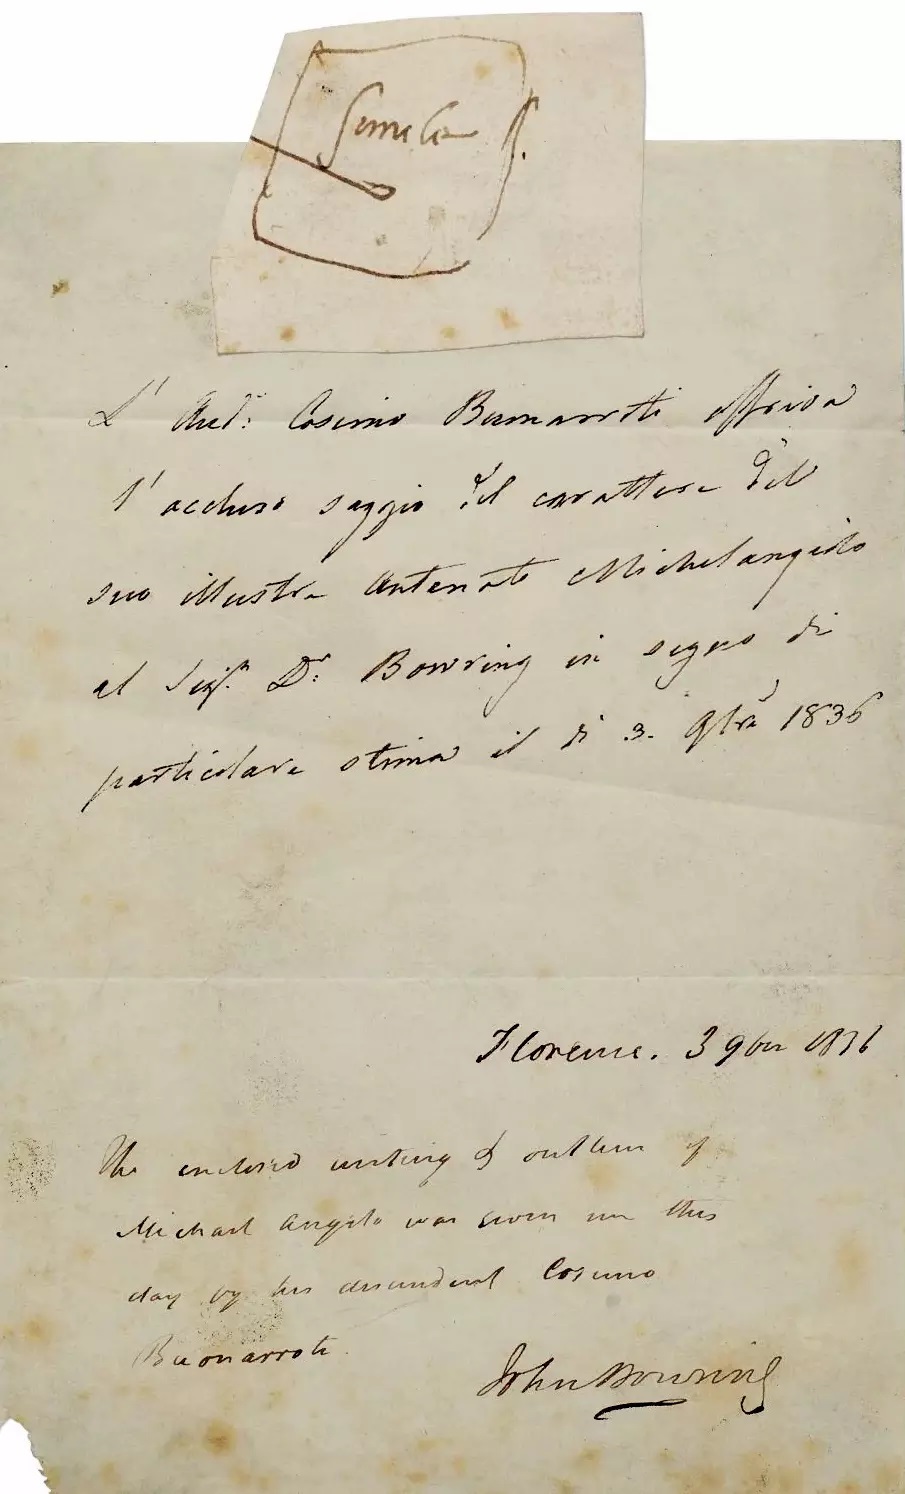 Simile
L' Aud.r Cosimo Buonarroti offriva
l' accluso saggio del carattere del
suo illustre Antenato Michelangiolo
al Sig.r D.r Bowring in segno di
particolare stima il dì 3. 9bre 1836
Florence. 3 9ber 1836
The enclosed writing & outline of
Michael Angelo was given me this
day by his descendent Cosimo
Buonarroti.
John Bowring